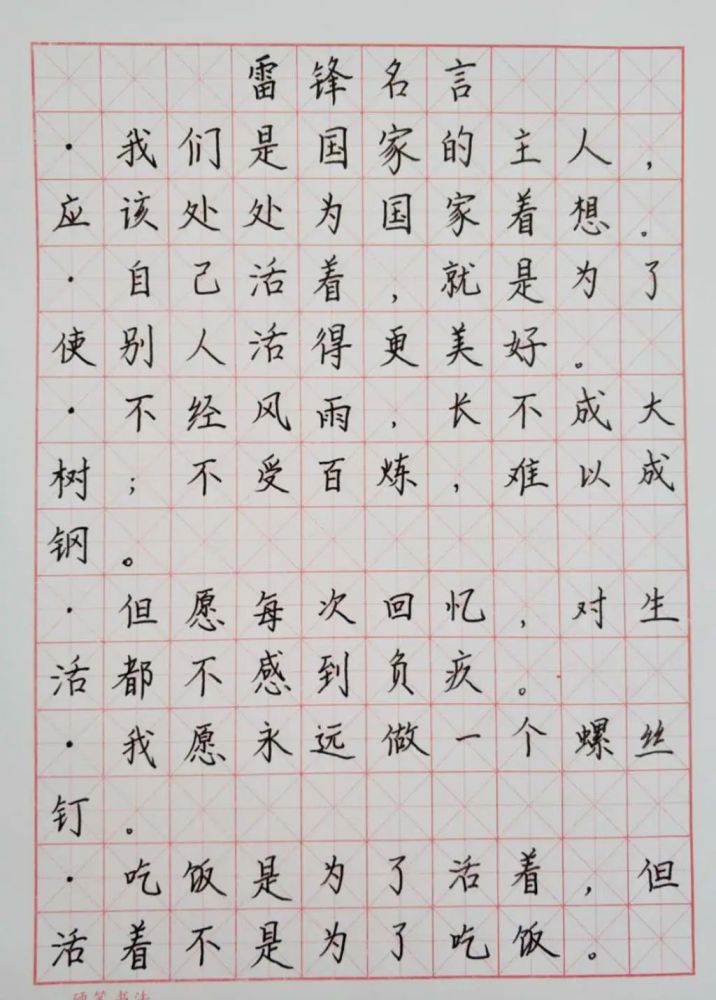 雷锋名言
·我们是国家的主人,
应该处处为国家着想。
·自己活着,就是为了
使别人活得更美好。
·不经风雨,长不成大
树;不受百炼,难以成
钢。
·但愿每次回忆,对生
活都不感到负疚。
·我愿永远做一个螺丝
钉。
·吃饭是为了活着,但
活着不是为了吃饭。
硬笔书法